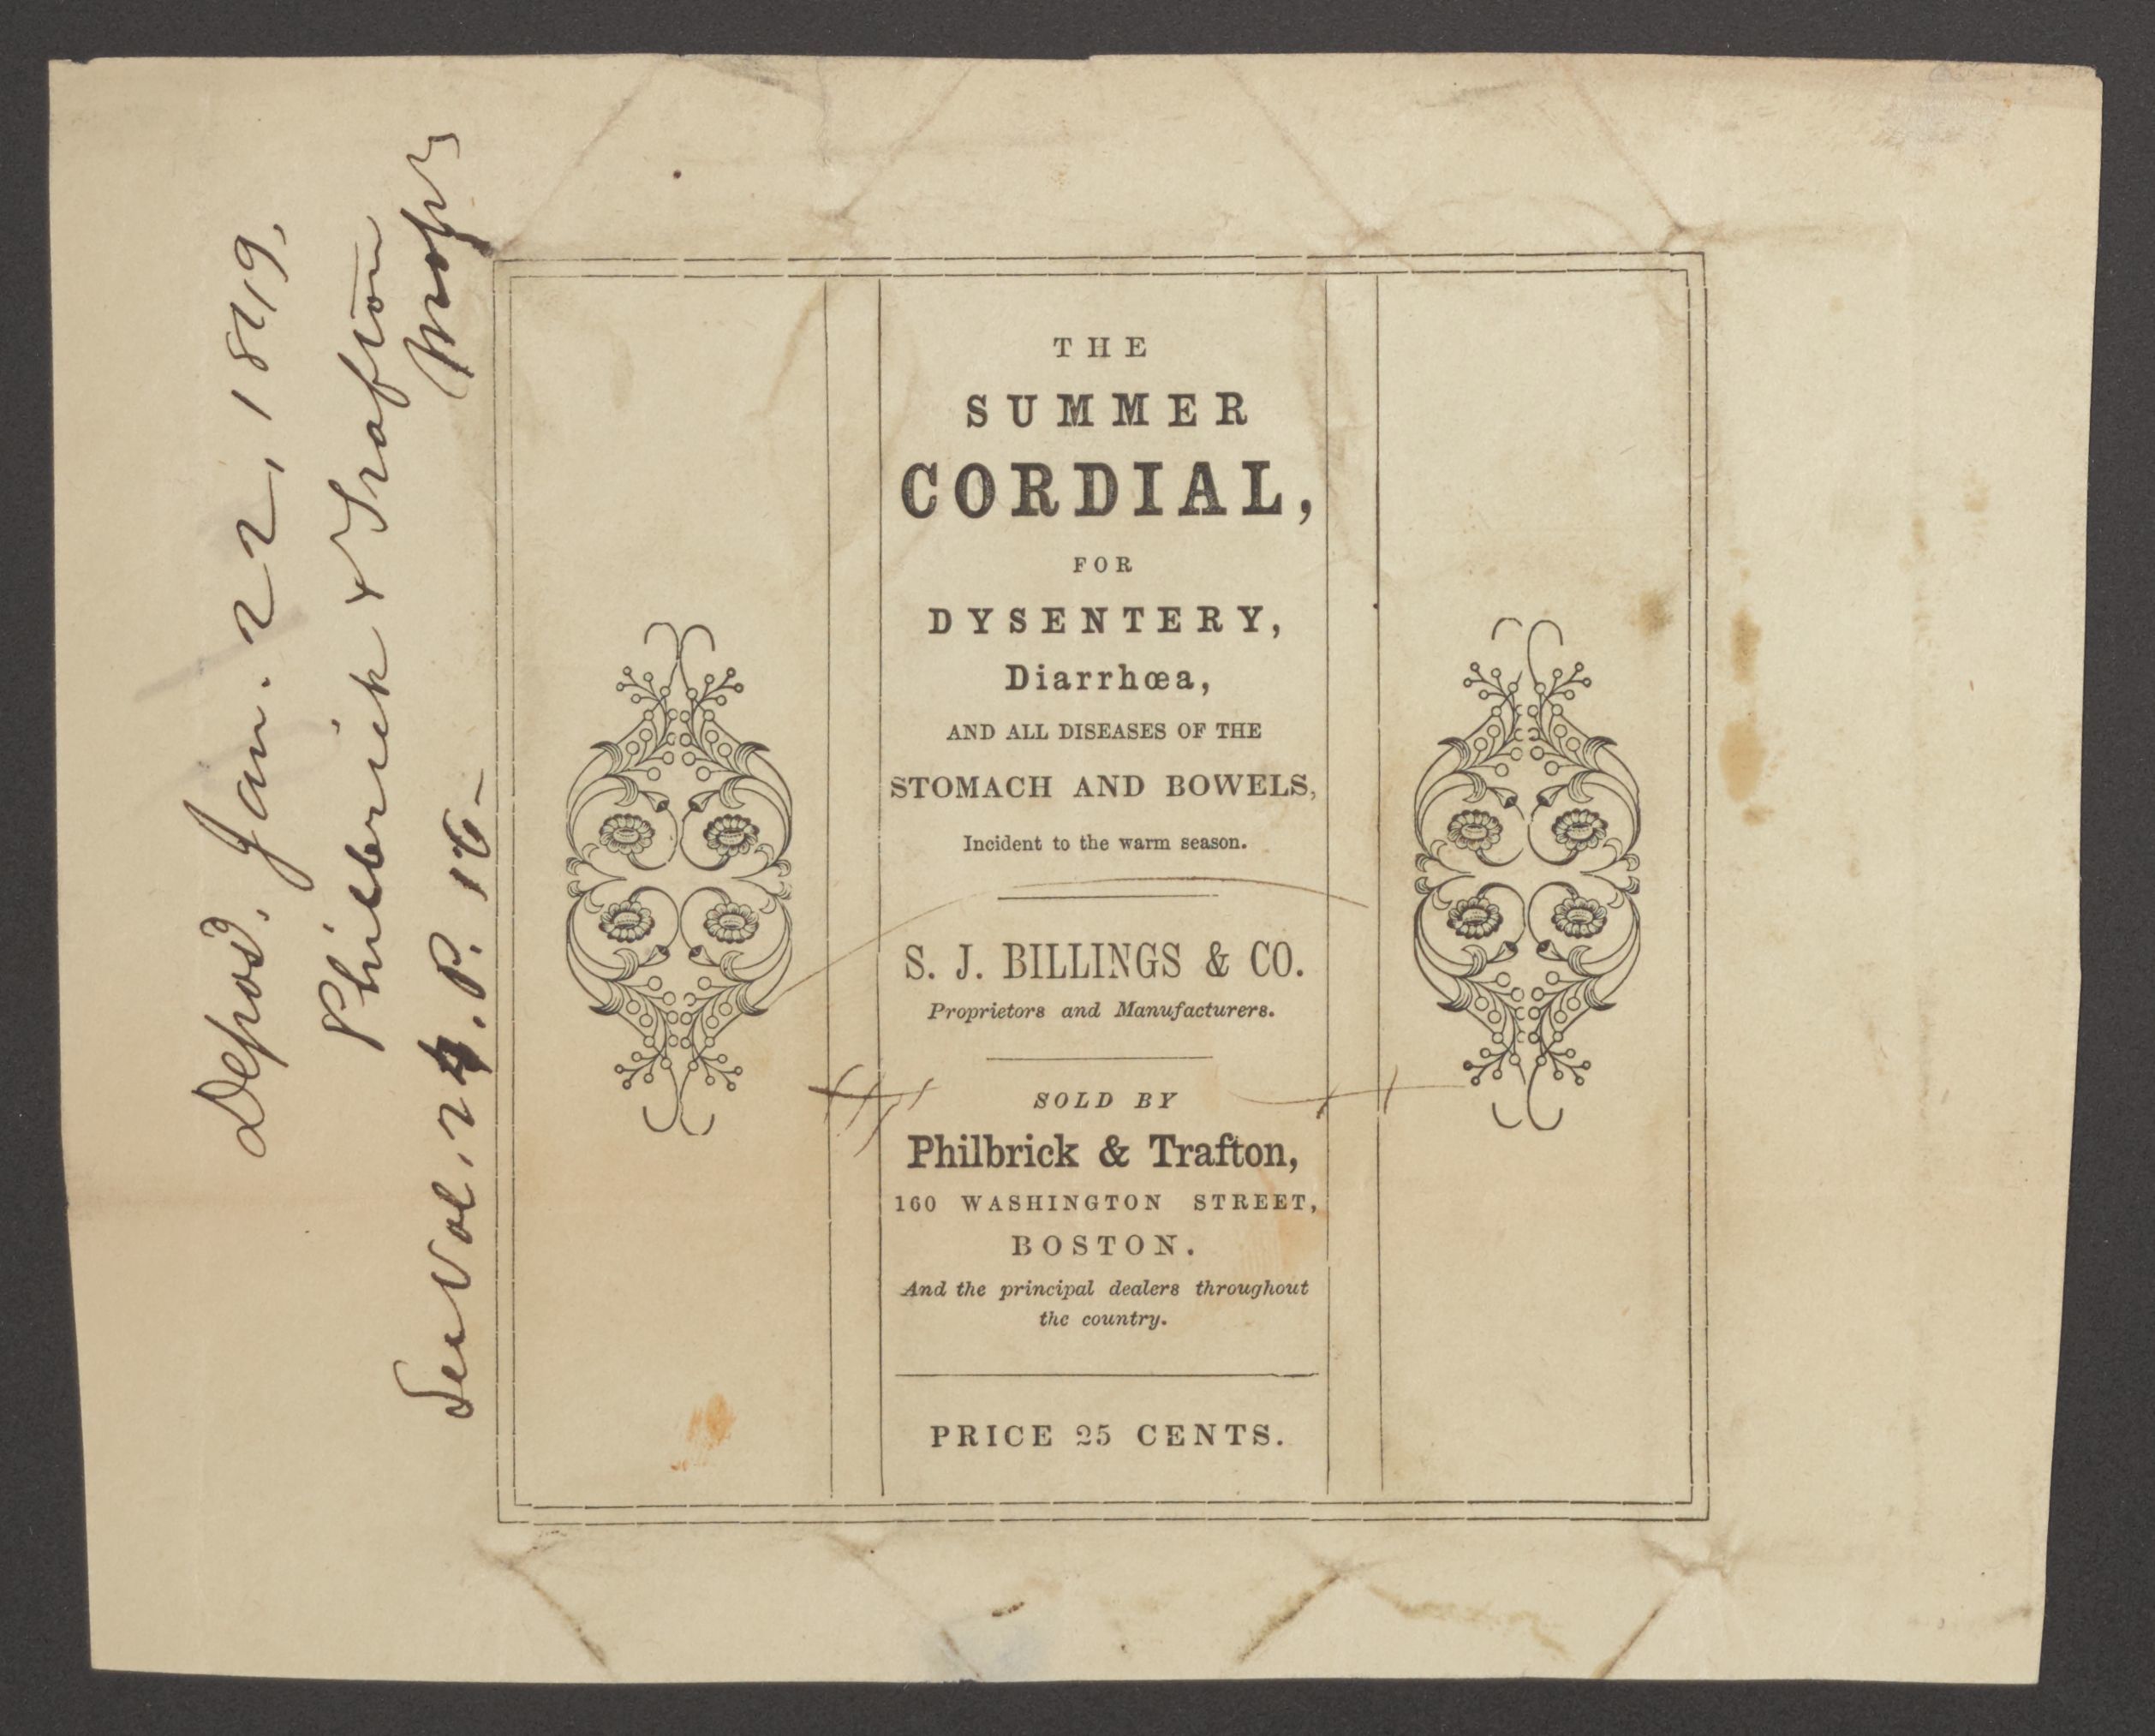 Depos'd. Jan. 22, 1849.
Philbrick & Trafton
See Vol. 24. P. 16-
THE
SUMMER
CORDIAL,
FOR
DYSENTERY,
Diarrhœa,
AND ALL DISEASES OF THE
STOMACH AND BOWELS,
Incident to the warm season.
S. J. BILLINGS & CO.
Proprietors and Manufacturers.
SOLD BY
Philbrick & Trafton,
160 WASHINGTON STREET,
BOSTON.
And the principal dealers throughout
the country.
PRICE 25 CENTS.